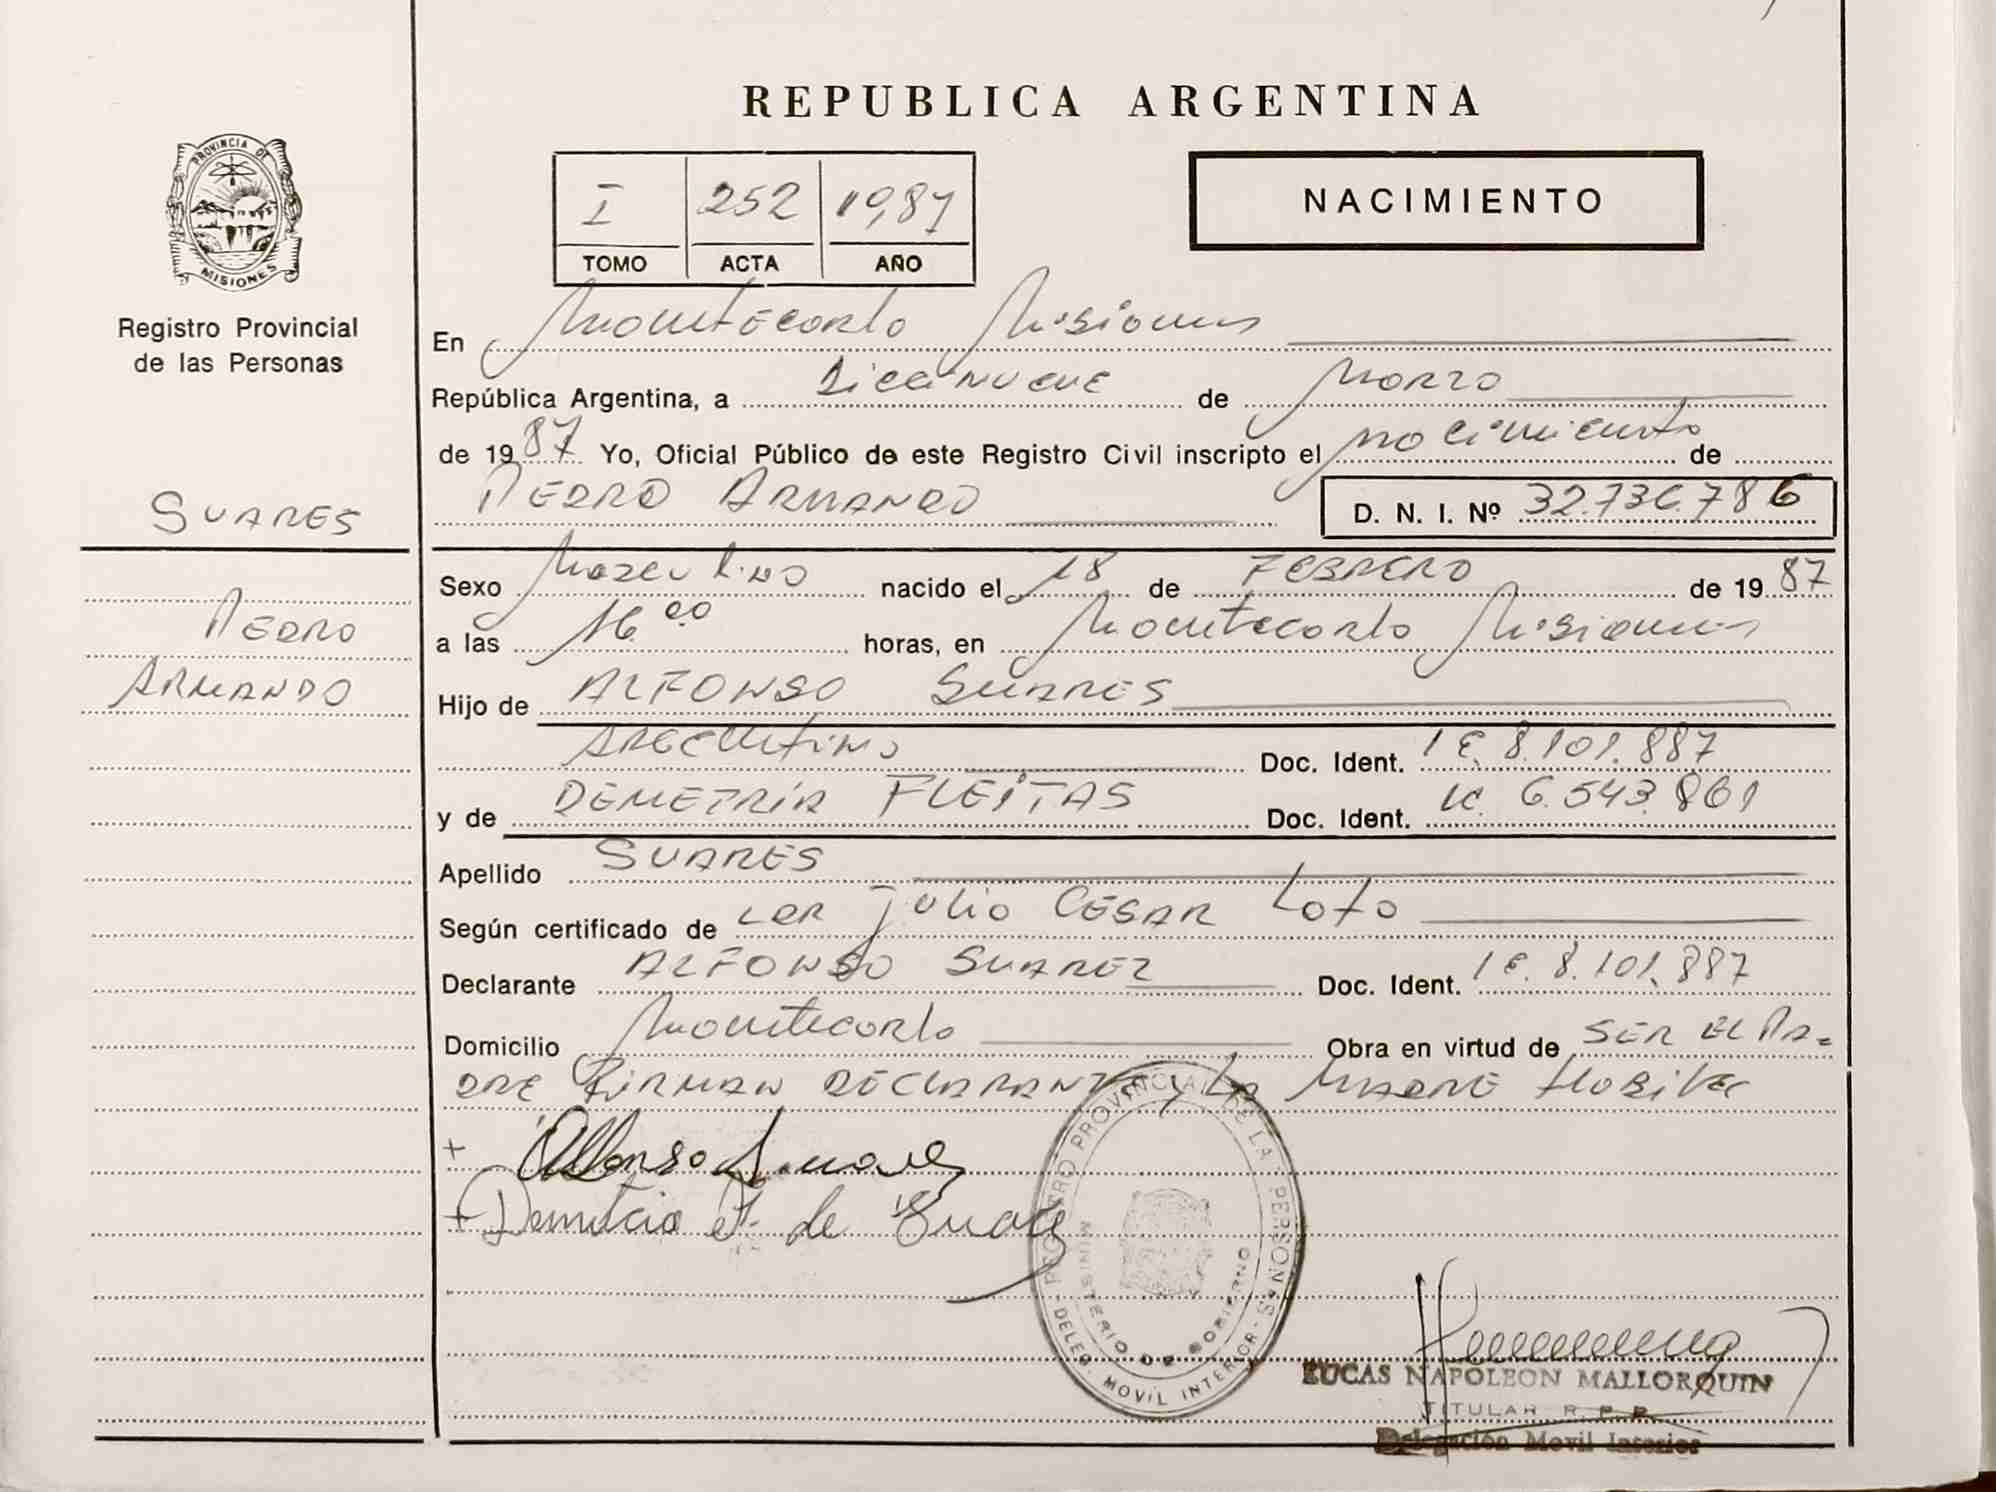 REPUBLICA ARGENTINA
PROVINCIA DE
MISIONES
Registro Provincial
de las Personas
I 252 19,87
TOMO ACTA AÑO
NACIMIENTO
En Montecarlo Misiones
República Argentina, a Diecinueve de Marzo
de 19 87 Yo, Oficial Público de este Registro Civil inscripto el nacimiento de
PEDRO ARMANDO
D. N. I. Nº 32.736.786
SUARES
PEDRO
ARMANDO
Sexo Masculino nacido el 18 de FEBRERO de 19 87
a las 16 00 horas, en Montecarlo Misiones
Hijo de ALFONSO SUARES
Argentino Doc. Ident. LE. 8.101.887
y de DEMETRIA FLEITAS Doc. Ident. LC. 6.543.861
Apellido SUARES
Según certificado de JULIO CESAR Loto
Declarante ALFONSO SUAREZ Doc. Ident. LE. 8.101.887
Domicilio Montecarlo Obra en virtud de SER EL PA-
DRE FIRMAN DECLARANTE y LA MADRE
+ Alfonso Suares
+ F. de
REGISTRO PROVINCIAL DE LA PERSONAS
MINISTERIO DE GOBIERNO
DELEG. MOVIL INTERIOR
LUCAS NAPOLEON MALLORQUIN
TITULAR R. P. P.
Delegación Movil Interior